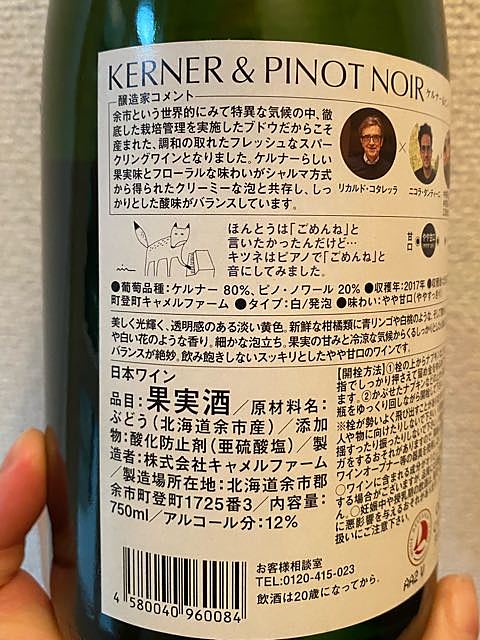 KERNER & PINOT NOIR
醸造家コメント
余市という世界的にみて特異な気候の中、徹
底した栽培管理を実施したブドウだからこそ
産まれた、調和の取れたフレッシュなスパー
クリングワインとなりました。ケルナーらしい
果実味とフローラルな味わいがシャルマ方式
から得られたクリーミーな泡と共存し、しっ
かりとした酸味がバランスしています。
リカルド・コタレッラ
×
ニコラ・タンティーニ
ほんとうは「ごめんね」と
言いたかったんだけど…
キツネはピアノで「ごめんね」と
音にしてみました。
甘口
やや甘口
●葡萄品種：ケルナー 80%、ピノ・ノワール 20% ●収穫年：2017年
町登町キャメルファーム ●タイプ：白/発泡 ●味わい：やや甘口
美しく光輝く、透明感のある淡い黄色。新鮮な柑橘類に青リンゴや白桃のような
や白い花のような香り。細かな泡立ち。果実の甘みと冷涼な気候からくるしっかり
バランスが絶妙。飲み飽きしないスッキリとしたやや甘口のワインです。
日本ワイン
品目：果実酒／原材料名：
ぶどう（北海道余市産）／添加
物：酸化防止剤（亜硫酸塩）／製
造者：株式会社キャメルファーム
／製造場所在地：北海道余市郡
余市町登町1725番3／内容量：
750ml／アルコール分：12%
【開栓方法】①栓の上からナプキン
指でしっかり押さえて
す。②かぶせたナプキン
瓶をゆっくり回しながら
※栓が勢いよく飛び出す
人や物に向けたりしない
揺すったり振ったりしない
ガをするおそれがあります
ワインオープナー等の
○ワインに含まれる成分が
する場合がございますが
ん。○妊娠中や授乳期の
に悪影響を与えるおそれ
扱いにご注意下さい。
4 580040 960084
お客様相談室
TEL:0120-415-023
飲酒は20歳になってから。